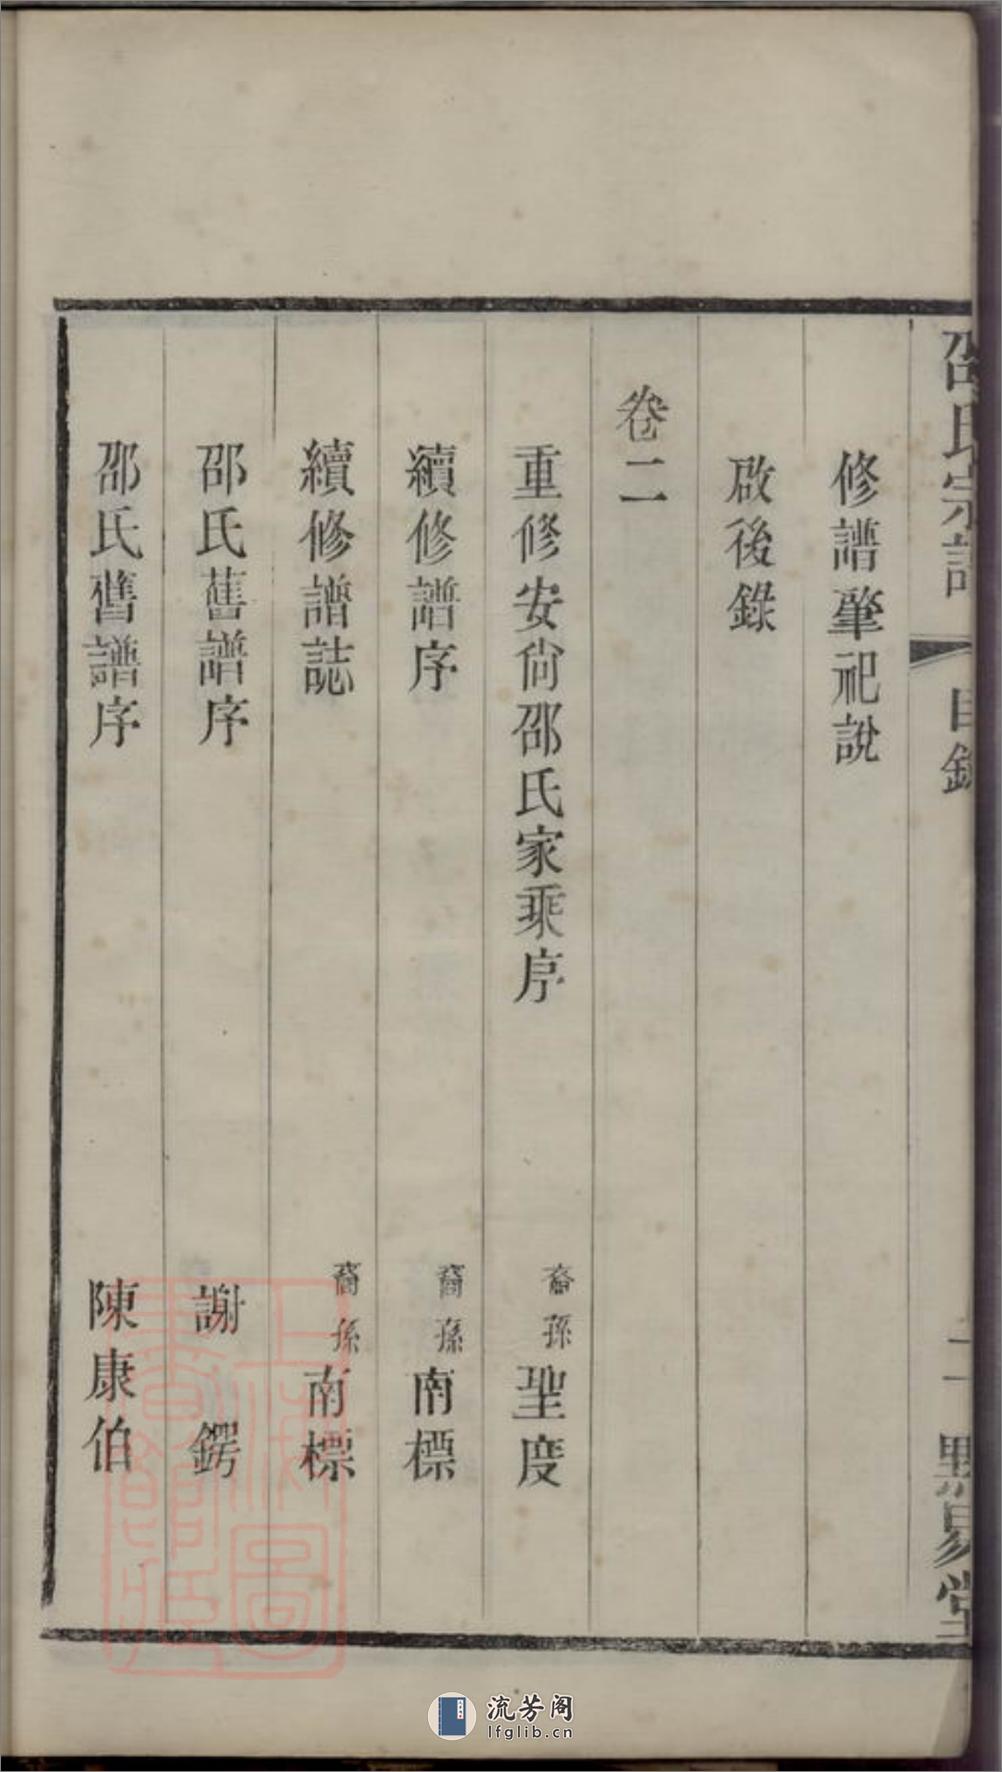 邵氏宗譜 目錄 二 點易堂
修譜肇祀說
啟後錄
卷二
重修安尙邵氏家乘序 裔孫聖度
續修譜序 裔孫南標
續修譜誌 裔孫南標
邵氏舊譜序 謝鍔
邵氏舊譜序 陳康伯
上海圖書館藏
流芳阁
lfglib.cn